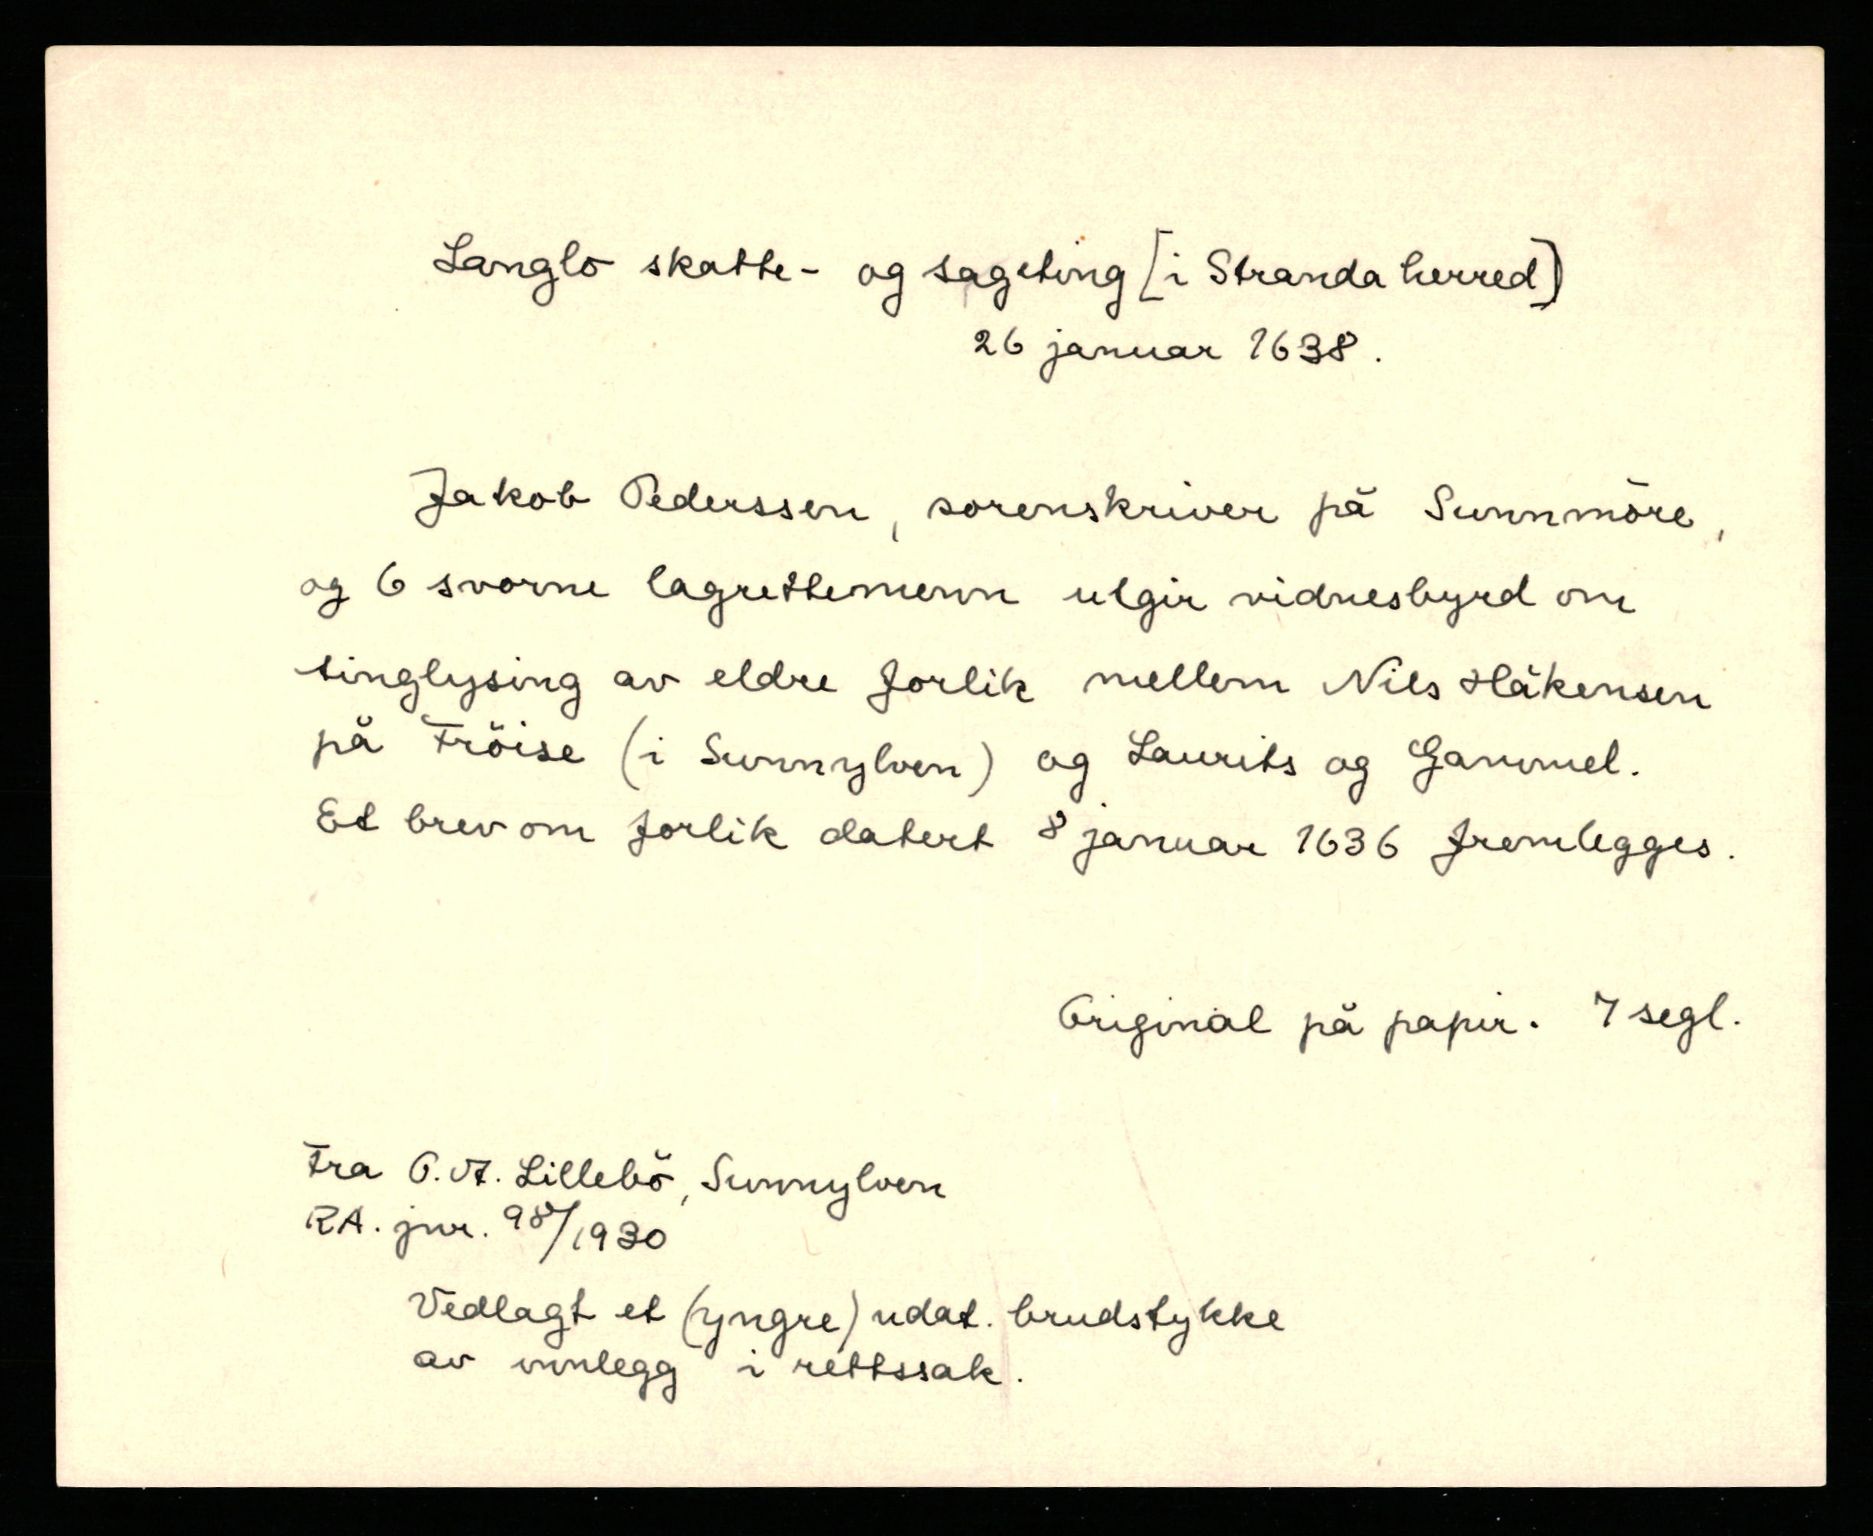 Langlo skatte- og sageting [i Stranda herred]
26 januar 1638.
Jakob Pederssen, sorenskriver på Sunnmöre,
og 6 svorne lagrettemenn utgir vidnesbyrd om
tinglysing av eldre forlik mellem Nils Håkensen
på Fröise (i Sunnylven) og Laurits og Gammel.
Et brev om forlik datert 8 januar 1636 fremlegges.
Original på papir. 7 segl.
Fra O. A. Lillebö, Sunnylven
RA. jnr. 98/1930
Vedlagt et (yngre) udat. brudstykke
av innlegg i rettssak.